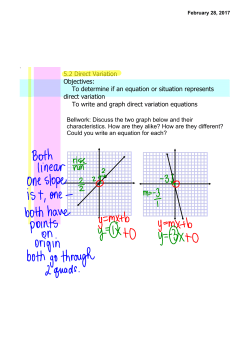 February 28, 2017
5.2 Direct Variation
Objectives:
To determine if an equation or situation represents
direct variation
To write and graph direct variation equations
Bellwork: Discuss the two graph below and their
characteristics. How are they alike? How are they different?
Could you write an equation for each?
Both
linear
one slope
is +, one -
both have
points
on
origin
both go through
2 quads.
rise
run
2
2
2
2
y=mx+b
y=1x+0
-3
1
m=-3
1
y=mx+b
y=-3x+0